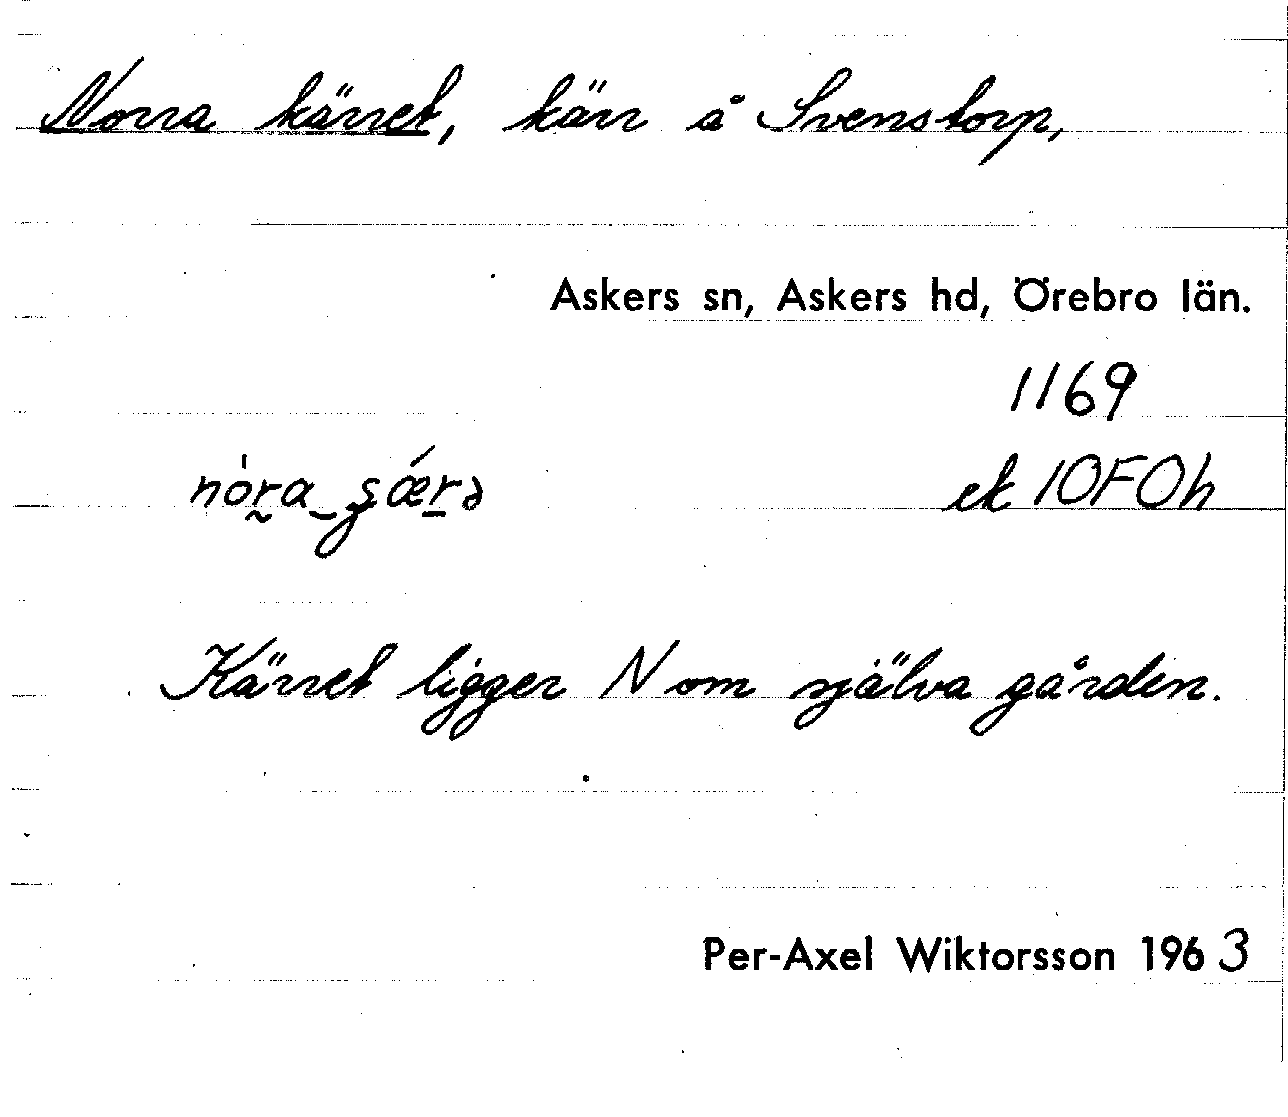 Norra kärret, kärr å Svenstorp,
Askers sn, Askers hd, Örebro län.
1169
ek 10F0h
Kärret ligger N om själva gården.
Per-Axel Wiktorsson 1963